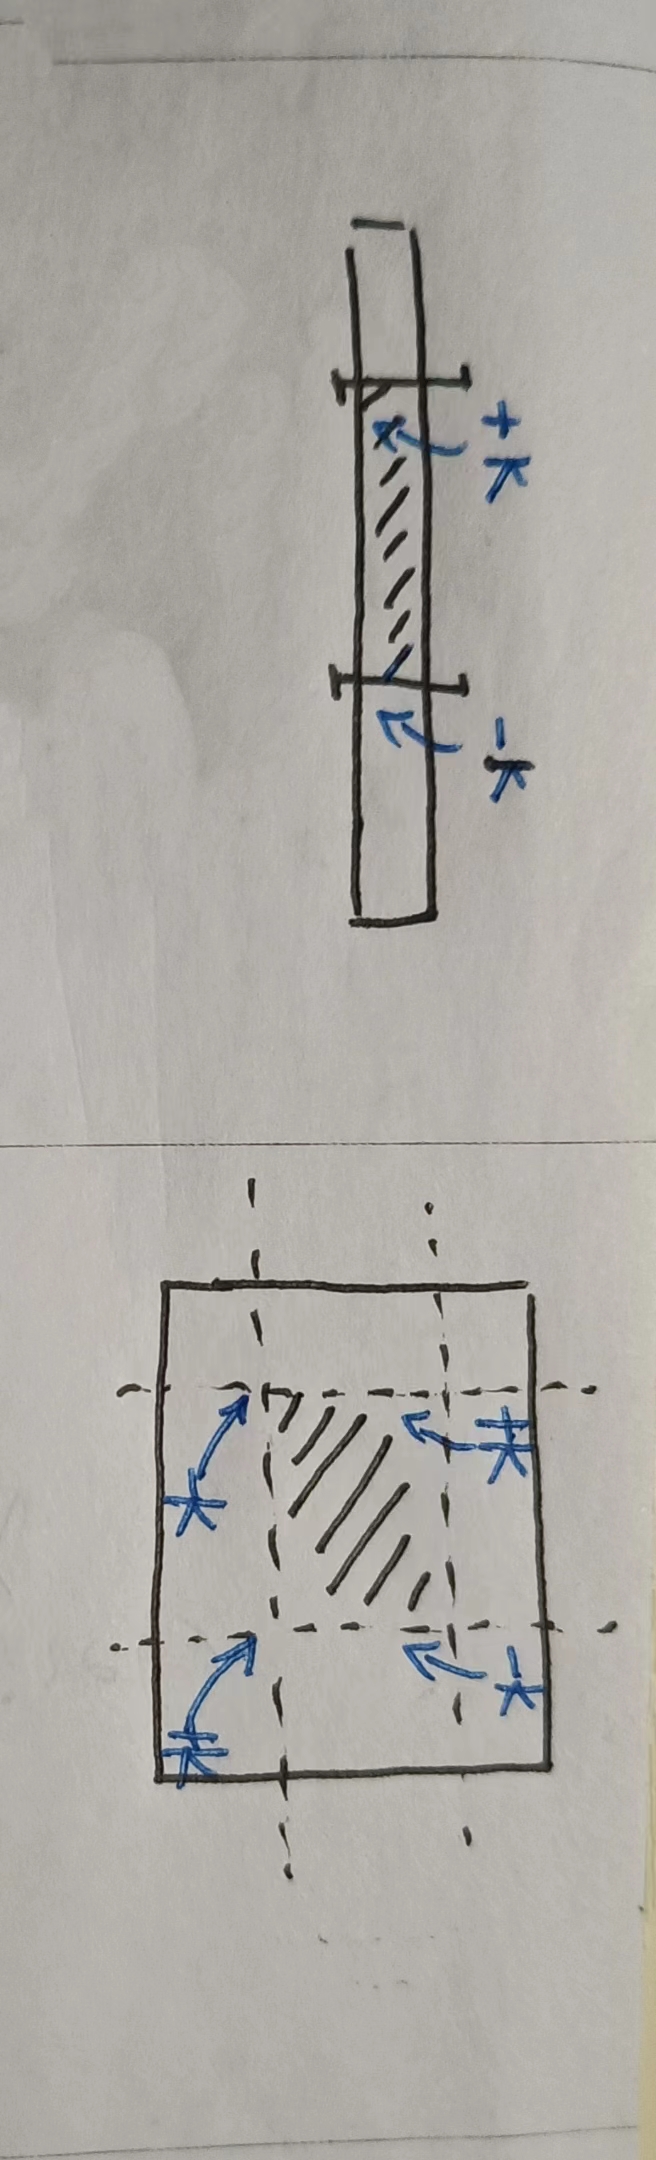 +K -K
+K -K
-K +K